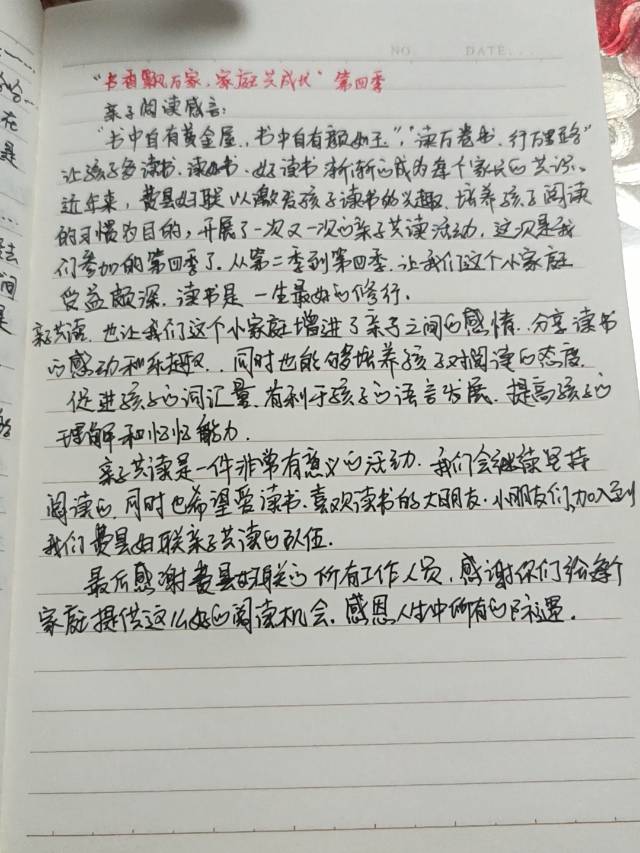 NO. DATE...
“书香飘万家，家庭共成长”第四季
亲子阅读感言：
“书中自有黄金屋，书中自有颜如玉”，“读万卷书，行万里路”
让孩子多读书、读好书、好读书渐渐的成为每个家长的共识。
近年来，费县妇联以激发孩子读书的兴趣，培养孩子阅读
的习惯为目的，开展了一次又一次的亲子共读活动，这次是我
们参加的第四季了。从第二季到第四季，让我们这个小家庭
受益颇深。读书是一生最好的修行。
亲子共读，也让我们这个小家庭增进了亲子之间的感情，分享读书
的感动和乐趣，同时也能够培养孩子对阅读的态度，
促进孩子的词汇量，有利于孩子的语言发展，提高孩子的
理解和记忆能力。
亲子共读是一件非常有意义的活动，我们会继续坚持
阅读的，同时也希望爱读书、喜欢读书的大朋友、小朋友们，加入到
我们费县妇联亲子共读的队伍。
最后感谢费县妇联的所有工作人员，感谢你们给每个
家庭提供这么好的阅读机会，感恩人生中所有的遇。